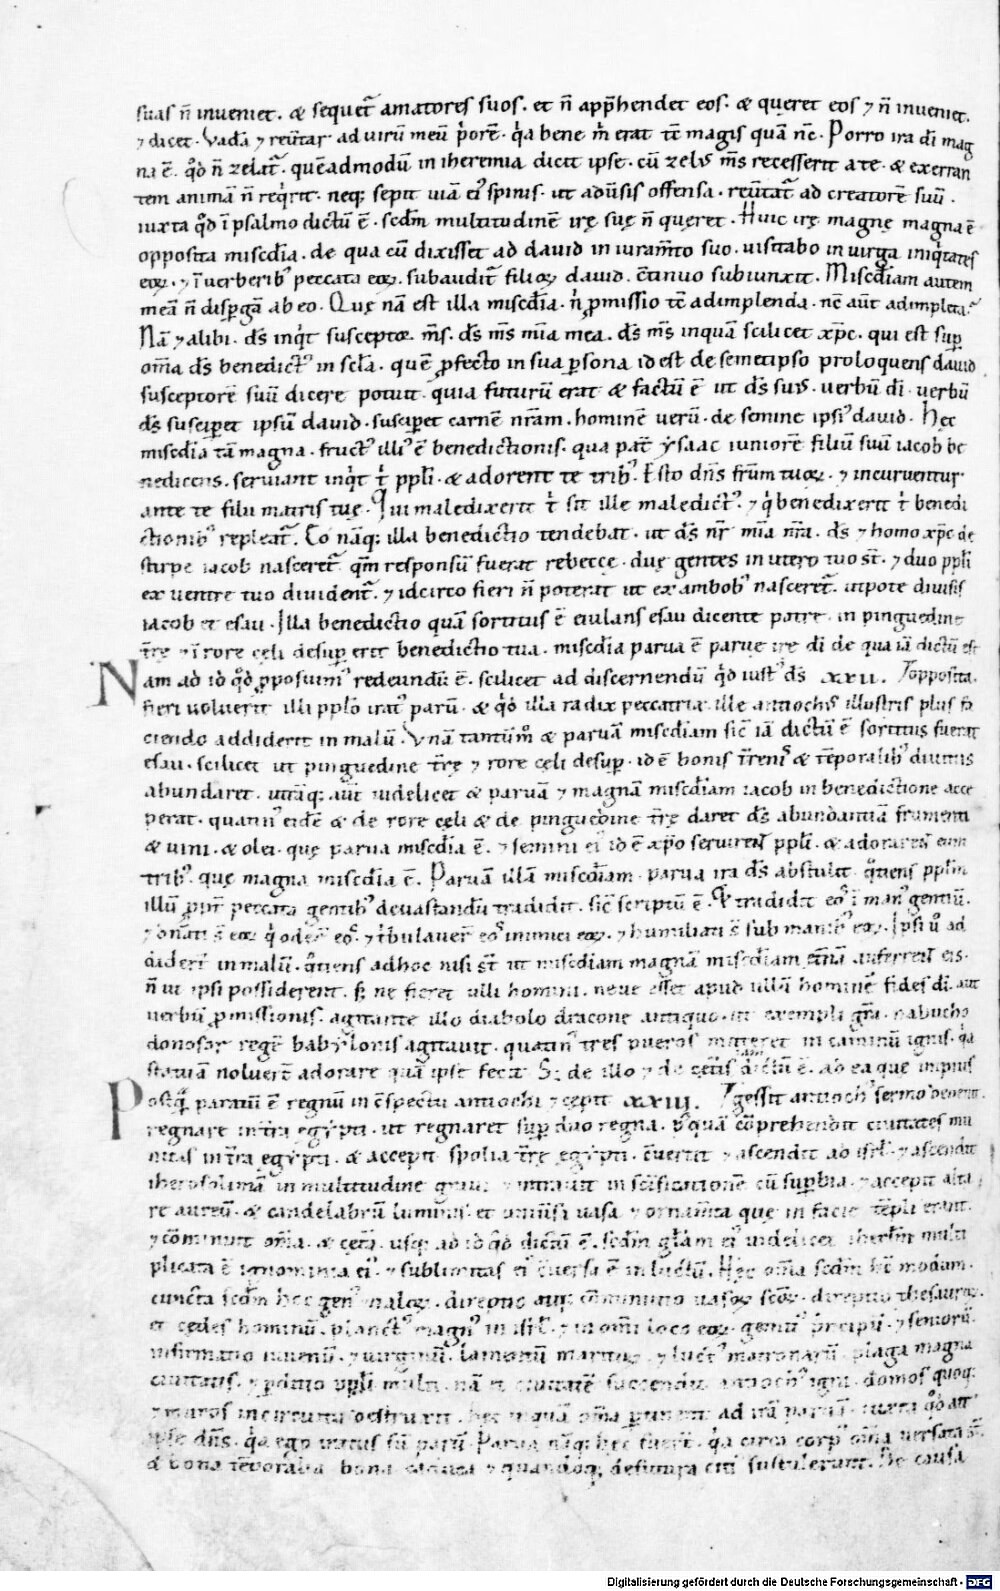 suas n̄ inveniet. & sequet᷑ amatores suos. et n̄ app̄hendet eos. & queret eos ⁊ n̄ inveniet.
⁊ dicet. Vadā ⁊ reūtar ad virū meū p̄orē. q̇a bene m̄ erat tē magis quā nc̄. Porro ira dī mag
na ē. qd̄ n̄ zelat᷑. quēadmodū in iheremia dicit ipse. cū zelꝰ ms̄ recesserit a te. & exerran
tem animā n̄ req̇rit. neq; sepit viā eiꝰ spinis. ut adūsis offensa. reūtat᷑ ad creatorē suū.
iuxta qd̄ ī psalmo dictū ē. scdm̄ multitudinē irę suę n̄ queret. Huic irę magnę magna ē
opposita miscdīa. de qua cū dixisset ad david in iuram̄to suo. visitabo in virga iniq̇tates
eoꝝ. ⁊ ī verberibꝰ peccata eoꝝ. subaudit᷑ filioꝝ david. c̄tinuo subiunxit. Miscdīam autem
meā n̄ disp̱gā ab eo. Quę nā est illa miscdīa. n̄ ꝓmissio tē adimplenda. nc̄ aūt adimpleta.
Nā ⁊ alibi. ds̄ inq̇t susceptor ms̄. ds̄ ms̄ mīa mea. ds̄ ms̄ inquā scilicet xp̄c. qui est sup̱
om̄a ds̄ benedictꝰ in scl̄a. quē ꝓfecto in sua p̱sona id est de semetipso proloquens david
susceptorē suū dicere potuit. quia futurū erat & factū ē ut ds̄ suꝰ. verbū dī. verbū
ds̄ suscip̱et ipsū david. suscip̱et carnē nr̄am. hominē verū. de semine ipsiꝰ david. Hec
miscdīa tā magna. fructꝰ illiꝰ ē benedictionis. qua pat̄ ysaac iuniorē filiū suū iacob be
nedicens. serviant inq̇t t̄ ppl̄i. & adorent te tribꝰ. Esto dn̄s fr̄um tuoꝝ. ⁊ incurventur
ante te filii matris tuę. Qui maledixerit t̄ sit ille maledictꝰ. ⁊ q̇ benedixerit t̄ benedi
ctionibꝰ repleat᷑. Eo nāq; illa benedictio tendebat. ut ds̄ nr̄ mīa nr̄a. ds̄ ⁊ homo xp̄c de
stirpe iacob nasceret᷑. qm̄ responsū fuerat rebeccę. duę gentes in utero tuo st̄. ⁊ duo ppl̄i
ex ventre tuo divident᷑. ⁊ idcirco fieri n̄ poterat ut ex ambobꝰ nasceret᷑. utpote divisis
iacob et esau. Illa benedictio quā sortitus ē eiulans esau dicente patre. in pinguedine
tr̄ę ⁊ ī rore cęli desup̱ erit benedictio tua. miscdīa parua ē paruę irę dī de qua iā dictū est
Nam ad id qd̄ ꝓposuimꝰ redeundū ē. scilicet ad discernendū qd̄ iustꝰ ds̄ XXII. opposita.
fieri voluerit illi pplo iratꝰ parū. & qd̄ illa radix peccatrix ille antiochꝰ illustris plus fa
ciendo addiderit in malū. Vnā tantūm̊ & paruā miscdīam sic̄ iā dictū ē sortitus fuerat
esau. scilicet ut pinguedine tr̄ę ⁊ rore cęli desup̱. id ē bonis tr̄enis & tēporalibꝰ divitiis
abundaret. utrāq; aūt videlicet & paruā ⁊ magnā miscdīam iacob in benedictione acce
perat. quatinꝰ eidē & de rore cęli & de pinguedine tr̄ę daret ds̄ abundantiā frumenti
& vini. & olei. quę parua miscdīa ē. ⁊ semini eiꝰ id ē xp̄o servirent ppl̄i. & adorarent eum
tribꝰ. quę magna miscdīa ē. Paruā illā miscdīam. parua ira ds̄ abstulit. q̊tiens pplm̄
illū ꝓpt̄ peccata gentibꝰ devastandū tradidit. sic̄ scriptū ē. Et tradidit eos ī manꝰ gentiū.
⁊ dn̄ati s̄ eoꝝ q̇ oder̄ eos. ⁊ t̄bulaver̄ eos inimici eoꝝ. ⁊ humiliati s̄ sub manibꝰ eoꝝ. Ipsi ů ad
diderī in malū. q̊tiens adhoc nisi st̄ ut miscdīam magnā miscdīam et̄nā auferrent eis.
n̄ ut ipsi possiderent. s; ne fieret ulli homini. neve esset apud ullū hominē fides dī. aut
verbū ꝓmissionis. agitante illo diabolo dracone antiquo. ut exempli gr̄a. nabucho
donosor regē babylonis agitavit. quatinꝰ tres pueros mitteret in caminū ignis. q̇a
statuam noluer̄t adorare quā ipse fecit. S; de illo ⁊ de cet̄is iam dictū ē. ad ea que impius
Postq̄ paratū ē regnū in c̄spectu antiochi ⁊ cepit XXIII. gessit antiochꝰ sermo devenit.
regnare in tr̄a egypti. ut regnaret sup̱ duo regna. Postquā cōprehendit civitates mu
nitas in tr̄a egypti. & accepit spolia tr̄ę egypti. c̄vertit ⁊ ascendit ad isrl̄. ⁊ ascendit
iherosolimā in multitudine gravi ⁊ intravit in sc̄ificationē cū sup̱bia. ⁊ accepit alta
re aureū. & candelabrū luminis. et universa vasa ⁊ ornam̄ta que in facie tēpli erant.
⁊ cōminuit om̄a. & cet̄a. usq; ad id qd̄ dictū ē. scdm̄ gl̄am eiꝰ videlicet ihrl̄m multi
plicata ē ignominia eiꝰ. ⁊ sublimitas eiꝰ c̄versa ē in luctū. Hec om̄a scdm̄ hc̄ modum.
cuncta scdm̄ hoc genꝰ maloꝝ. direptio aut cōminutio vasoꝝ scōꝝ. direptio thesauroꝝ.
et cędes hominū. planctꝰ magnꝰ in isrl̄. ⁊ in om̄i loco eoꝝ. gemitꝰ p̄ncipū. ⁊ senioꝝ.
infirmatio iuvenū. ⁊ virginū. lamentū maritoꝝ. ⁊ luctꝰ matronarū. plaga magna
civitatis. ⁊ p̱ditio ppl̄i multi. nā et civitatē succendit antiochꝰ igni. domos quoq;
⁊ muros in circuitu destruxit. hec inquā om̄a p̱tinent ad irā paruā. iuxta qd̄ ait
ipse dn̄s. q̇a ego iratus sū parū. Parua nāq; hec fuer̄t. q̇a circa corpꝰ om̄ia versata s̄t.
& bona tēporalia bona caduca ⁊ quandoq; desitura citiꝰ sustulerunt. De causa
Digitalisierung gefördert durch die Deutsche Forschungsgemeinschaft - DFG